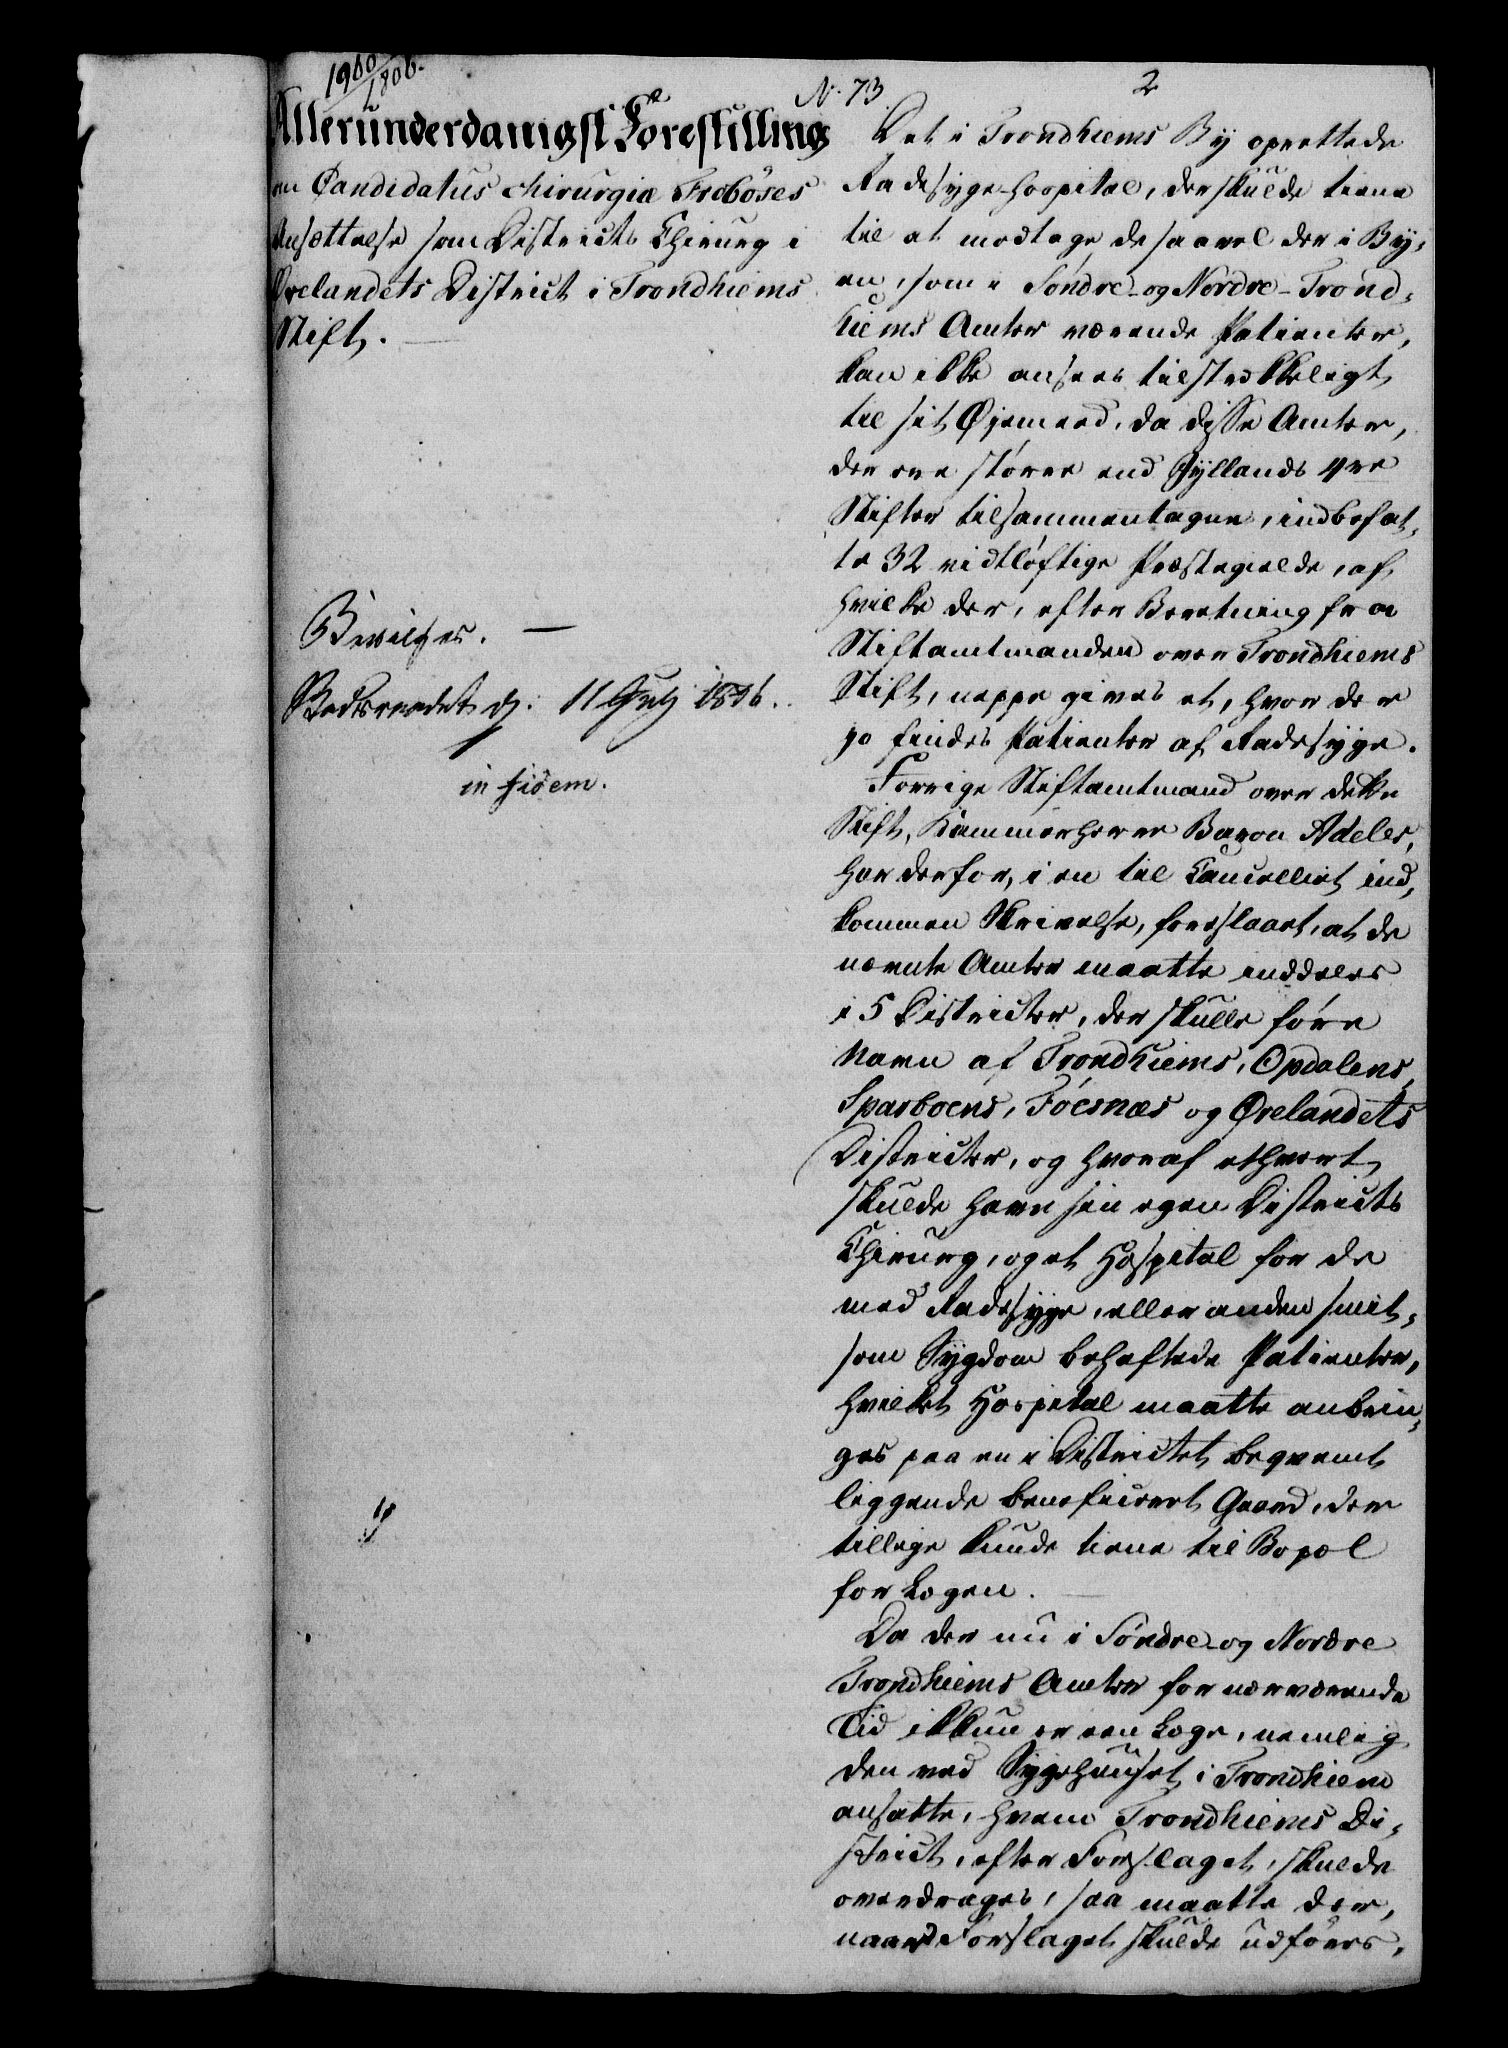 1960/1806.
Allerunderdanigst Forestilling
om Candidatus chirurgiæ Froböses
Ansættelse som Districts Chirurg i
Ørelandets District i Trondhiems
Stift.
Bevilges.
11 July 1806.
in fidem.
N. 73
2
Det i Trondhiems By oprettede
Radesyge-Hospital, der skulde tiene
til at modtage de saavel der i By-
en, som i Søndre- og Nordre-Trond-
hiems Amter værende Patienter,
kan ikke ansees tilstrækkeligt
til sit Øjemeed, da disse Amter,
der ere større end Jyllands 4re
Stifter tilsammentagne, indbefat-
te 32 vidtløftige Præstegielde, af
hvilke der, efter Beretning fra
Stiftamtmanden over Trondhiems
Stift, neppe gives et, hvor der
jo findes Patienter af Radesyge.
Forrige Stiftamtmand over dette
Stift, Kammerherre Baron Adeler,
har derfor, i en til Cancelliet ind-
kommen Skrivelse, foreslaaet, at de
nævnte Amter maatte inddeles
i 5 Districter, der skulle føre
Navn af Trondhiems, Opdalens,
Sparboens, Foesnæs og Ørelandets
Districter, og hvoraf ethvert
skulde have sin egen Districts
Chirurg, og et Hospital for de
med Radesyge, eller anden smit-
som Sygdom behæftede Patienter,
hvilket Hospital maatte anbrin-
ges paa en i Districtet beqvemt
liggende beneficeret Gaard, der
tillige kunde tiene til Bopæl
for Lægen.
Da der nu i Søndre- og Nordre
Trondhiems Amter for nærværende
Tid ikkun er een Læge, nemlig
den ved Sygehuuset i Trondhiem
ansatte, hvem Trondhiems Di-
strict, efter Forslaget, skulde
overdrages, saa maatte der,
naar Forslaget skulde udføres,